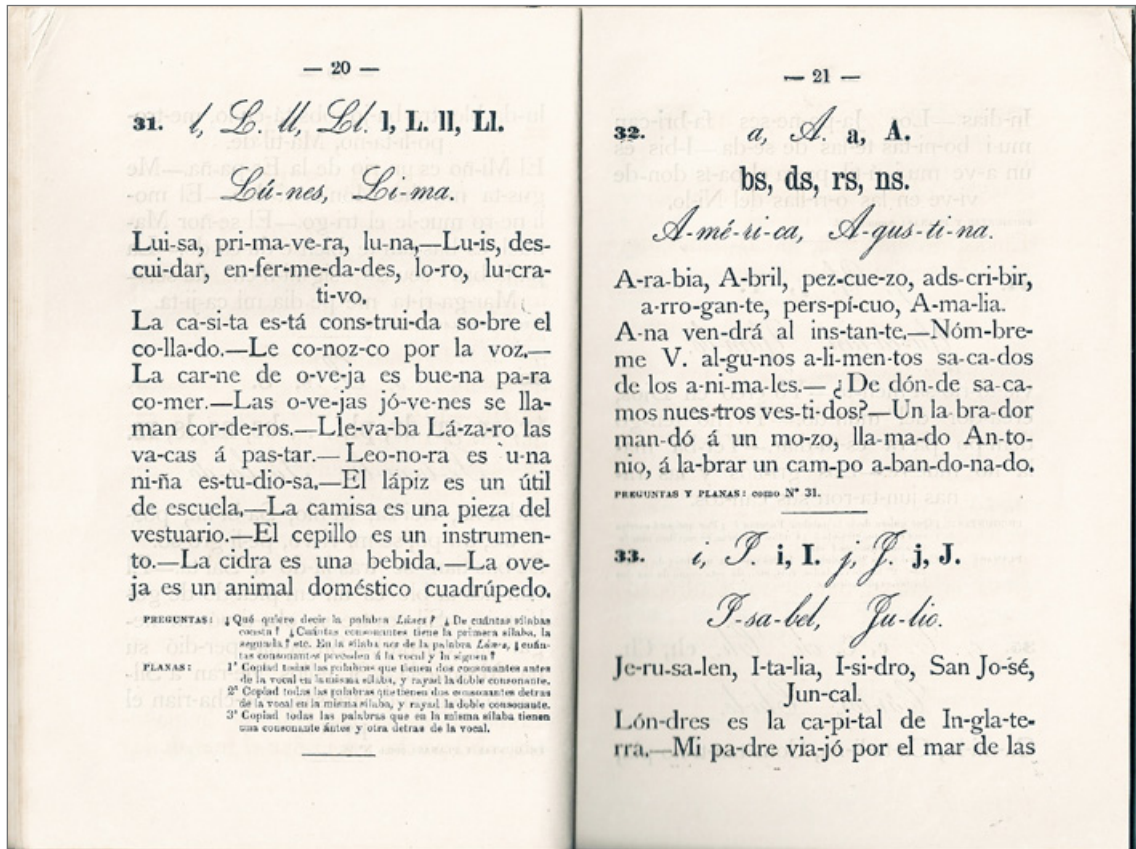 — 20 —
31. l, L. ll, Ll. l, L. ll, Ll.
Lú-nes, Li-ma.
Lui-sa, pri-ma-ve-ra, lu-na,—Lu-is, des-
cui-dar, en-fer-me-da-des, lo-ro, lu-cra-
ti-vo.
La ca-si-ta es-tá cons-trui-da so-bre el
co-lla-do.—Le co-noz-co por la voz.—
La car-ne de o-ve-ja es bue-na pa-ra
co-mer.—Las o-ve-jas jó-ve-nes se lla-
man cor-de-ros.—Lle-va-ba Lá-za-ro las
va-cas á pas-tar.—Leo-no-ra es u-na
ni-ña es-tu-dio-sa.—El lápiz es un útil
de escuela.—La camisa es una pieza del
vestuario.—El cepillo es un instrumen-
to.—La cidra es una bebida.—La ove-
ja es un animal doméstico cuadrúpedo.
PREGUNTAS: ¿Qué quiére decir la palabra Lúnes? ¿De cuántas sílabas
consta? ¿Cuántas consonantes tiene la primera sílaba, la
segunda? etc. En la sílaba nes de la palabra Lúnes, ¿cuán-
tas consonantes preceden á la vocal y la siguen?
PLANAS: 1ª Copiad todas las palabras que tienen dos consonantes antes
de la vocal en la misma sílaba, y rayad la doble consonante.
2ª Copiad todas las palabras que tienen dos consonantes detras
de la vocal en la misma sílaba, y rayad la doble consonante.
3ª Copiad todas las palabras que en la misma sílaba tienen
una consonante ántes y otra detras de la vocal.
— 21 —
32. a, A. a, A.
bs, ds, rs, ns.
A-mé-ri-ca, A-gus-ti-na.
A-ra-bia, A-bril, pez-cue-zo, ads-cri-bir,
a-rro-gan-te, pers-pí-cuo, A-ma-lia.
A-na ven-drá al ins-tan-te.—Nóm-bre-
me V. al-gu-nos a-li-men-tos sa-ca-dos
de los a-ni-ma-les.—¿De dón-de sa-ca-
mos nues-tros ves-ti-dos?—Un la-bra-dor
man-dó á un mo-zo, lla-ma-do An-to-
nio, á la-brar un cam-po a-ban-do-na-do.
PREGUNTAS Y PLANAS: como Nº 31.
33. i, I. i, I. j, J. j, J.
I-sa-bel, Ju-lio.
Je-ru-sa-len, I-ta-lia, I-si-dro, San Jo-sé,
Jun-cal.
Lón-dres es la ca-pi-tal de In-gla-te-
rra.—Mi pa-dre via-jó por el mar de las